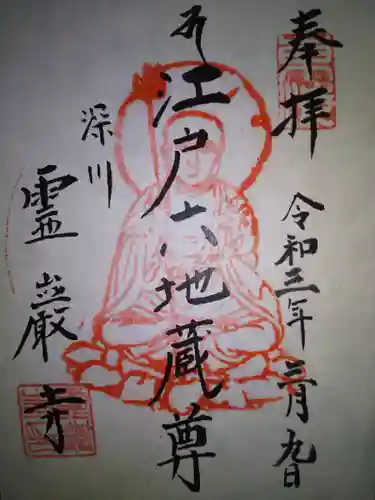 奉拝
令和三年三月九日
江戸六地蔵尊
深川
霊巌寺